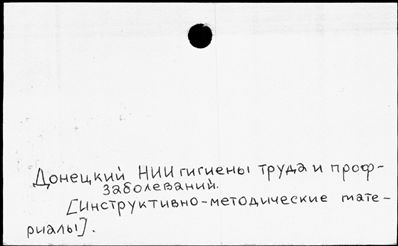 Донецкий НИИ гигиены труда и проф-
заболеваний.
[Инструктивно-методические мате-
риалы].